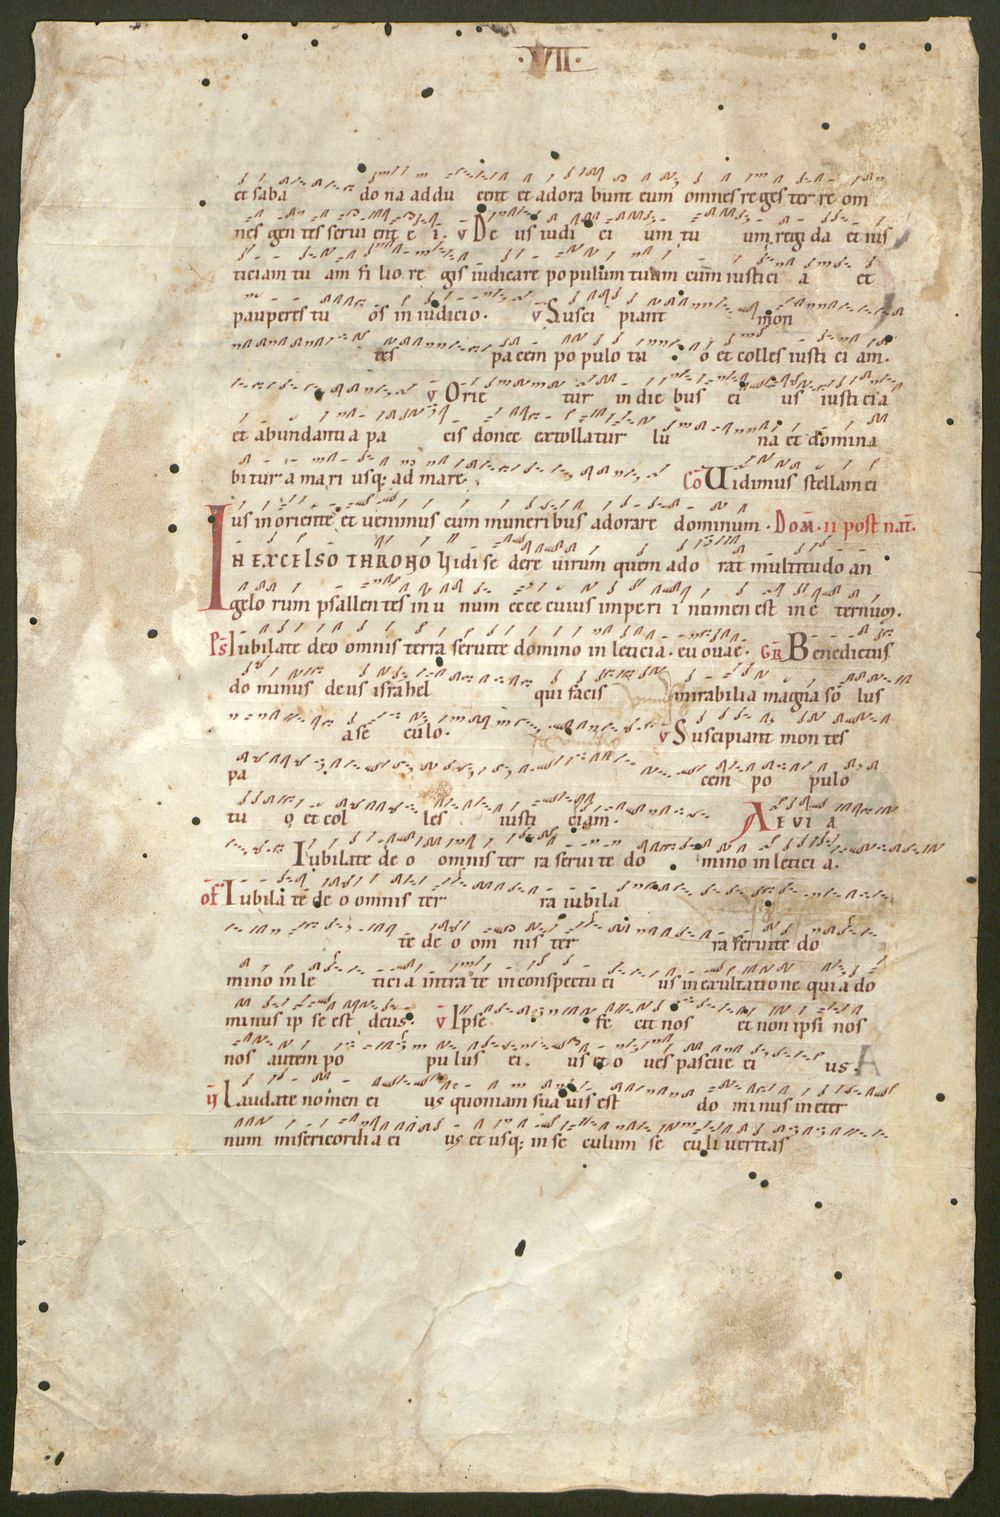 ·XVII·
et saba do na addu cent et adora bunt eum omnes reges ter re om
nes gen tes servi ent e i. v De us iudi ci um tu um regi da et ius
ticiam tu am fi lio re gis iudicare populum tuum cum iustici a et
pauperes tu os in iudicio. v Susci piant mon
tes pacem populo tu o et colles iusti ci am.
v Orie tur in die bus ei us iusticia
et abundantia pa cis donec extollatur lu na et domina
bitur a mari usq; ad mare. Co Uidimus stellam ei
us in oriente et venimus cum muneribus adorare dominum. Dom. II post nat.
IN EXCELSO THRONO Uidi se dere virum quem ado rat multitudo an
gelo rum psallen tes in u num ecce cuius imperi i nomen est in e ternum.
Ps Iubilate deo omnis terra servite domino in leticia. euouae. GR Benedictus
dominus deus israhel qui facis mirabilia magna so lus
a se culo. v Suscipiant montes
pa cem po pulo
tu o et col les iusti ciam. AEVIA
Iubilate de o omnis ter ra servite do mino in letici a.
of Iubila te de o omnis ter ra iubila
te de o om nis ter ra servite do
mino in le ticia intra te in conspectu ei us in exultatione quia do
minus ip se est deus. v Ipse fe cit nos et non ipsi nos
nos autem po pulus ei us et o ves pascue ei us. A
v Laudate nomen ei us quoniam sua vis est do minus in eter
num misericordia ei us et usq; in se culum se culi veritas